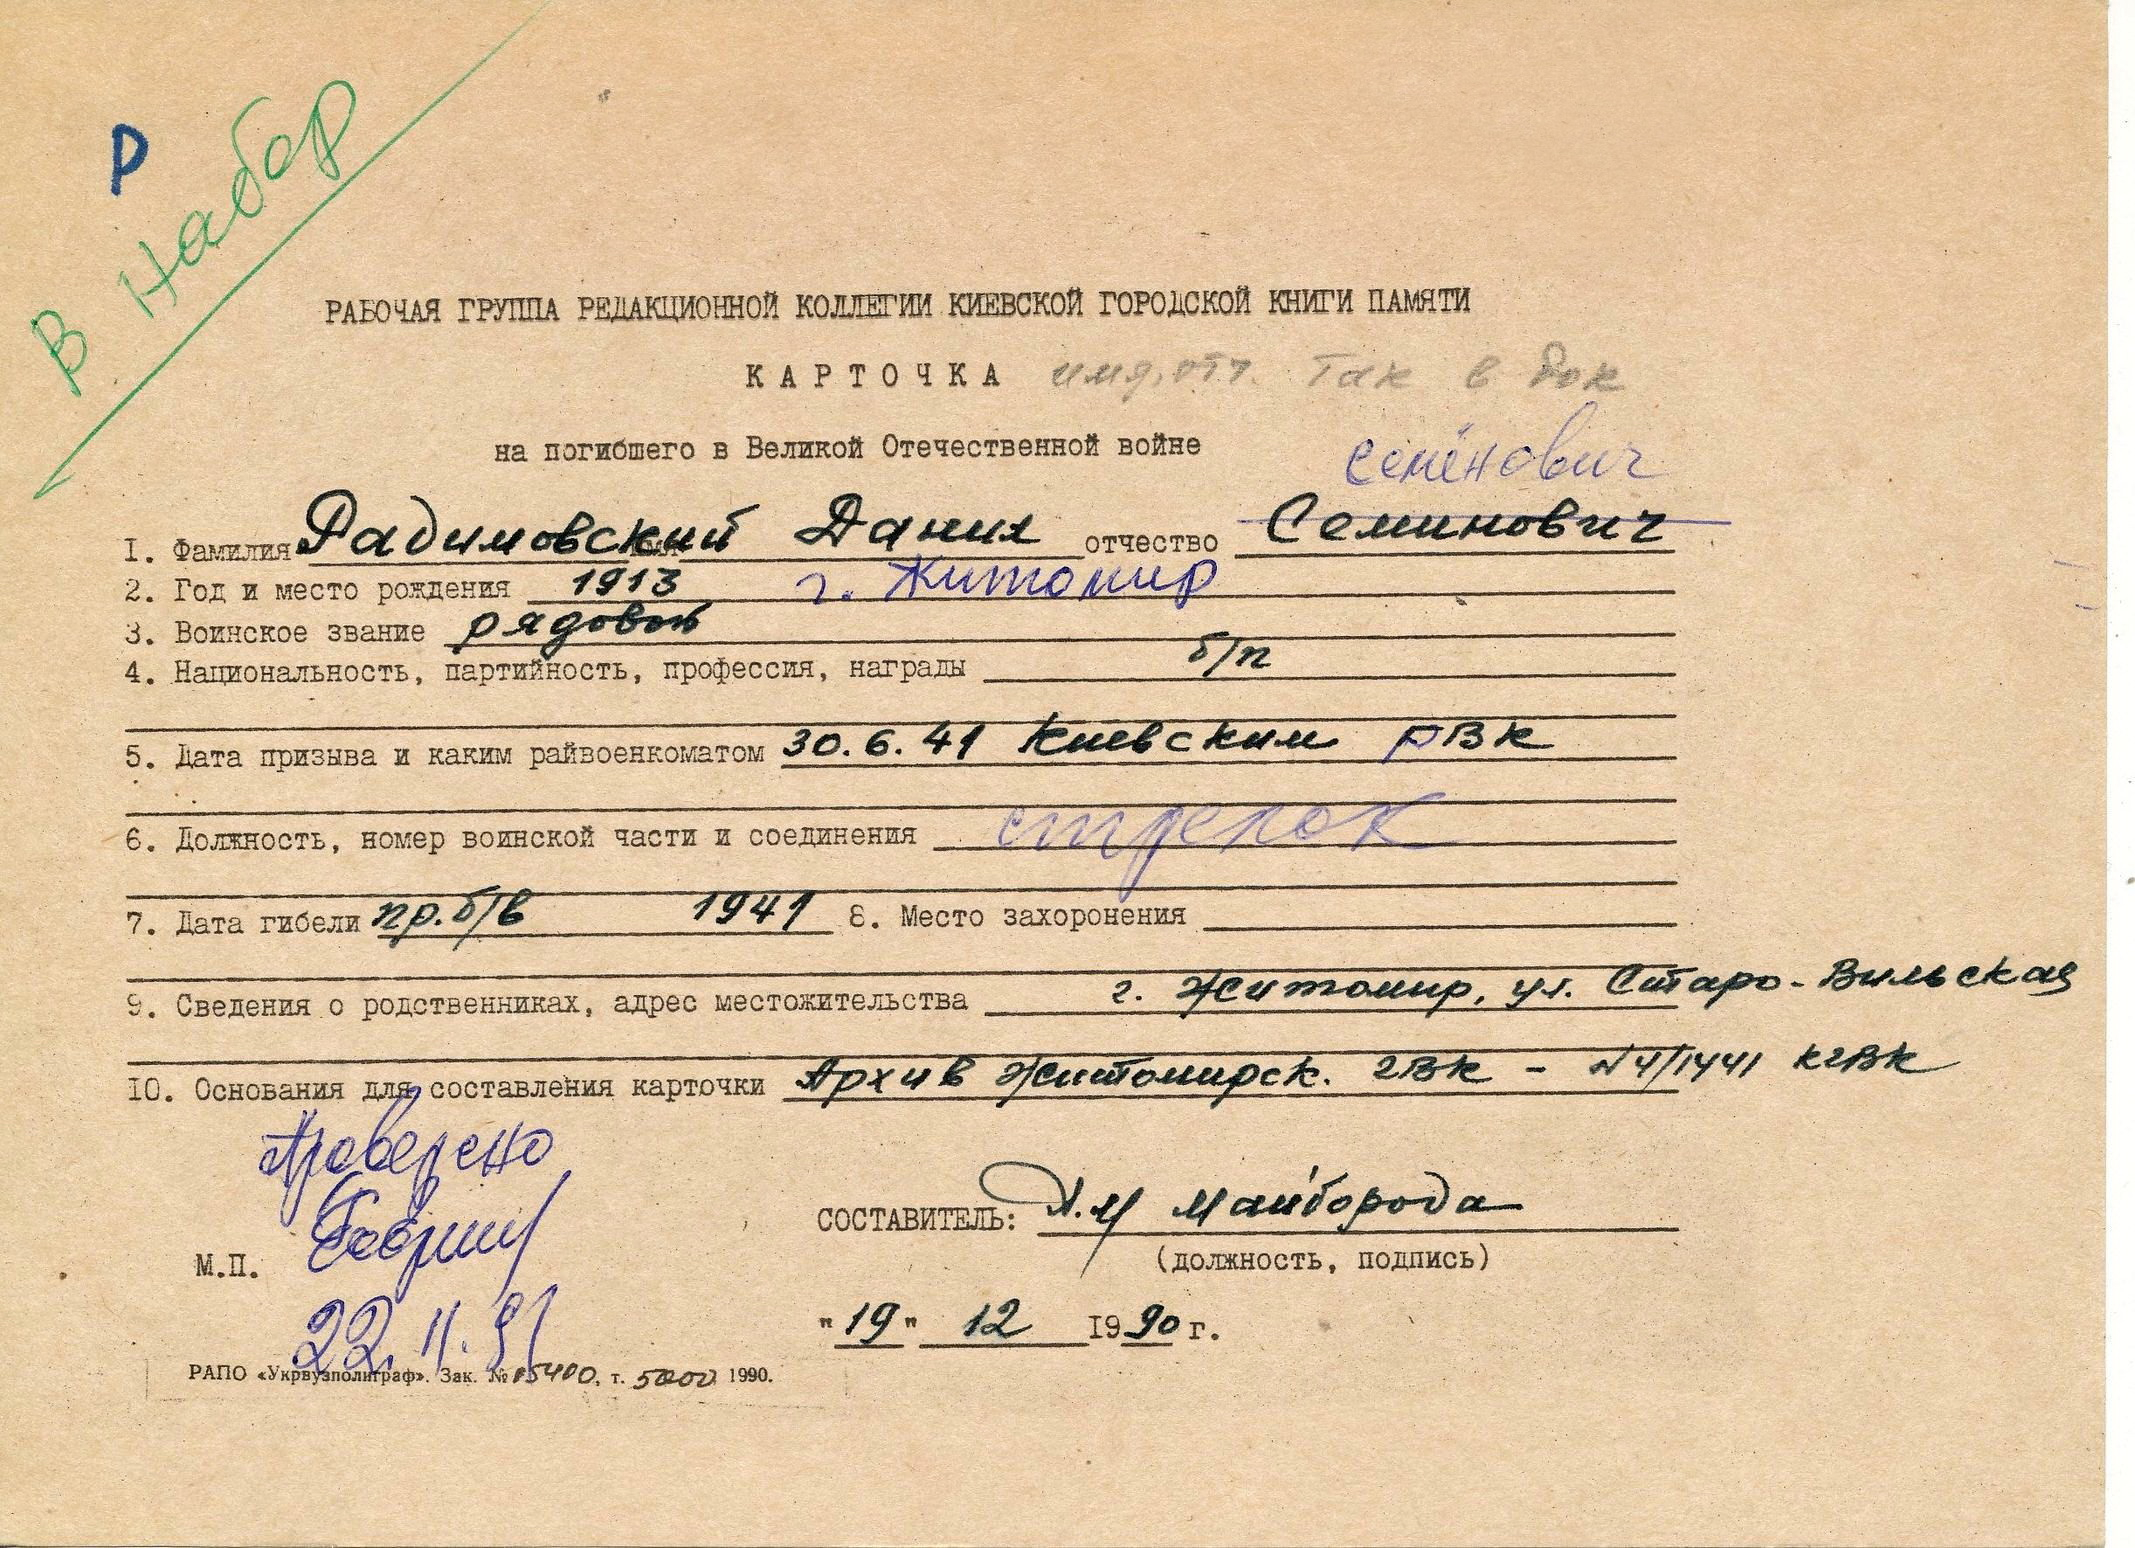 Р
В набор
РАБОЧАЯ ГРУППА РЕДАКЦИОННОЙ КОЛЛЕГИИ КИЕВСКОЙ ГОРОДСКОЙ КНИГИ ПАМЯТИ
КАРТОЧКА имя, отч. так в док
на погибшего в Великой Отечественной войне
Семёнович
1. Фамилия Радимовский имя Данил отчество Семинович
2. Год и место рождения 1913 г. Житомир
3. Воинское звание рядовой
4. Национальность, партийность, профессия, награды б/п
5. Дата призыва и каким райвоенкоматом 30.6.41 Киевским РВК
6. Должность, номер воинской части и соединения стрелок
7. Дата гибели пр.б/в 1941 8. Место захоронения
9. Сведения о родственниках, адрес местожительства г. Житомир, ул. Старо-Вильская
10. Основания для составления карточки Архив Житомирск. ГВК - №4/1441 КГВК
Проверено
СОСТАВИТЕЛЬ: Майборода
(должность, подпись)
М.П.
22.11.91
"19" 12 1990 г.
РАПО «Укрвузполиграф». Зак. № 05400, т. 5000 1990.